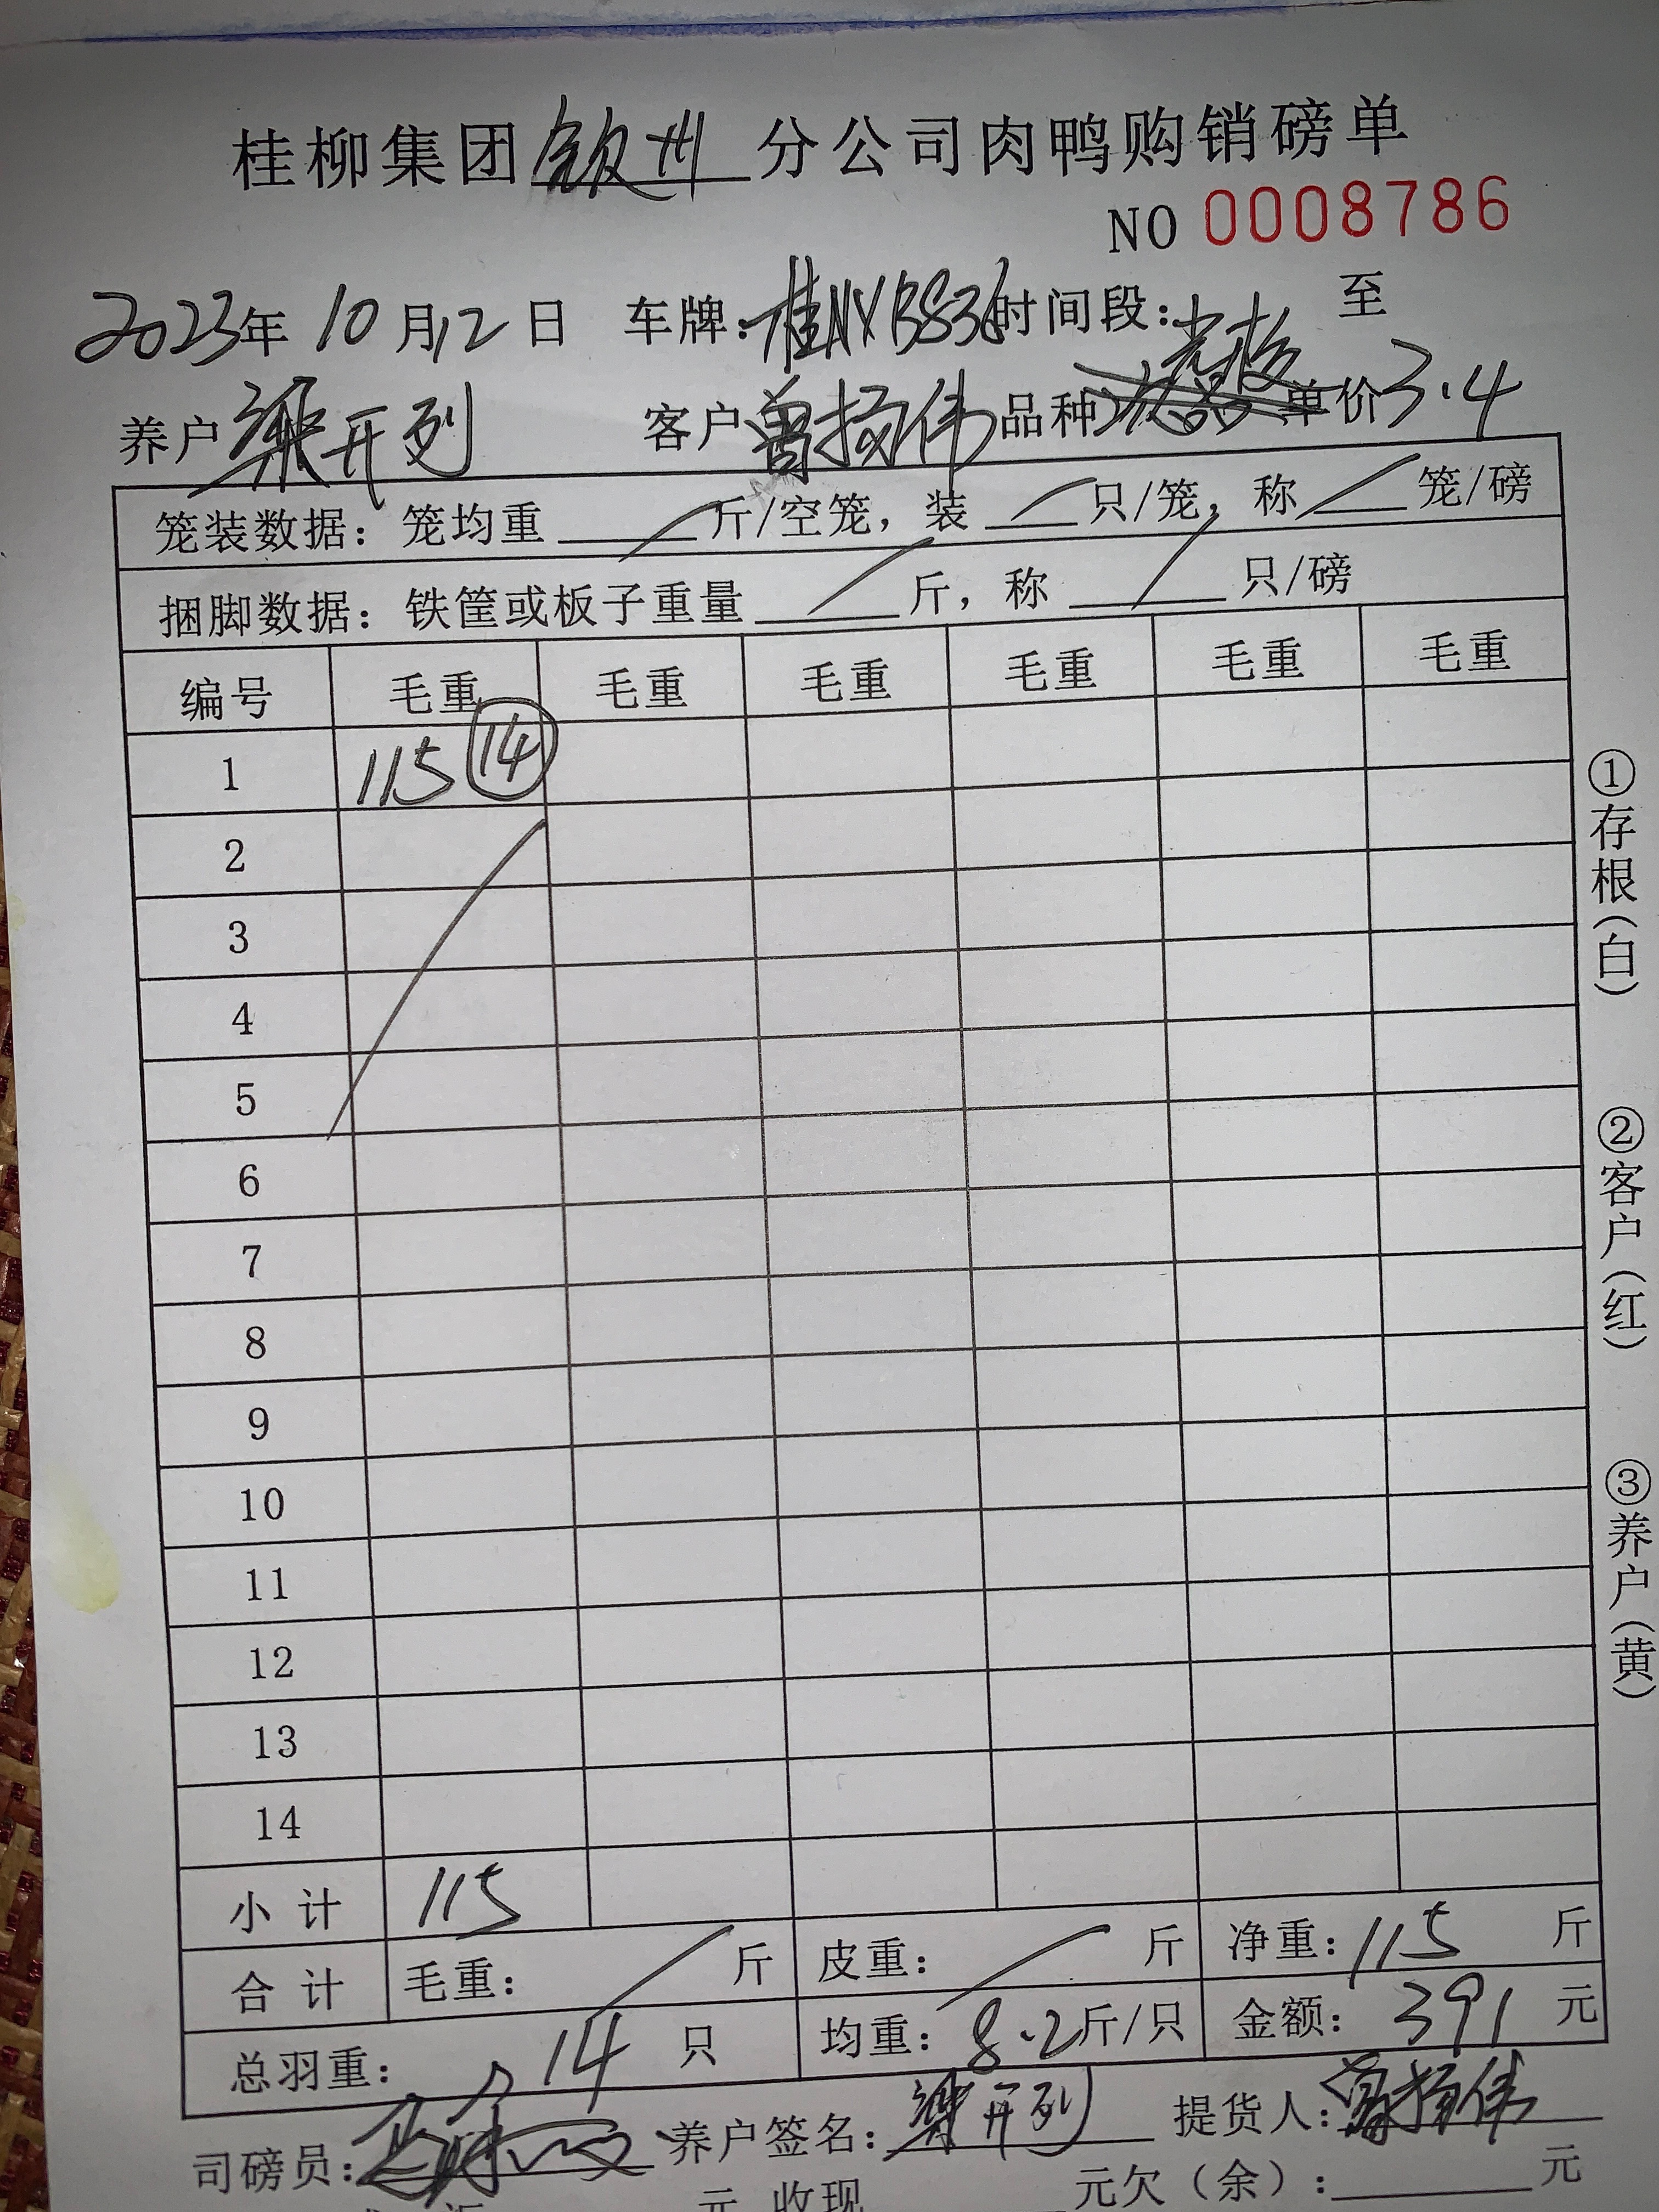 桂柳集团钦州分公司肉鸭购销磅单
NO 0008786
2023年10月12日 车牌:桂NXB836时间段: 至
养户梁开列 客户曾扬伟品种 单价3.4
笼装数据:笼均重 斤/空笼,装 只/笼,称 笼/磅
捆脚数据:铁筐或板子重量 斤,称 只/磅
编号 毛重 毛重 毛重 毛重 毛重 毛重
1 115 14
2
3
4
5
6
7
8
9
10
11
12
13
14
小计 115
合计 毛重: 斤 皮重: 斤 净重:115 斤
总羽重:14 只 均重:8.2斤/只 金额:391 元
司磅员: 养户签名:梁开列 提货人:曾扬伟
元 收现 元欠(余): 元
①存根(白)
②客户(红)
③养户(黄)